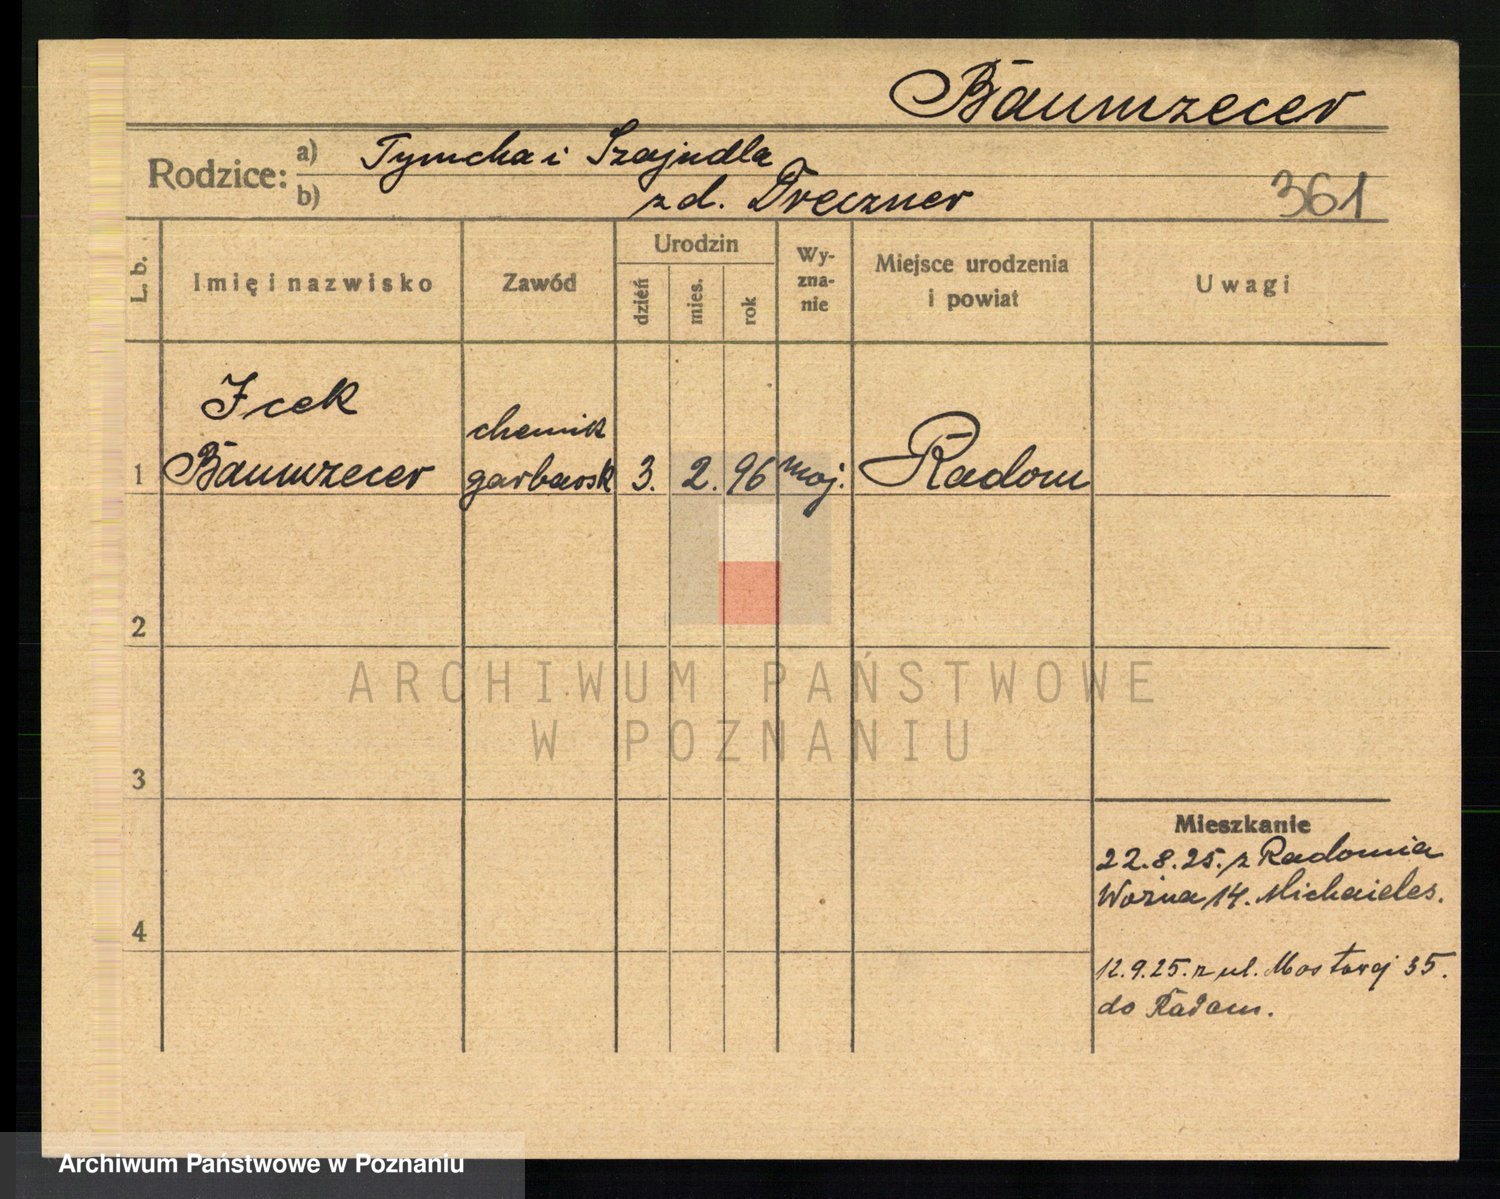 Baumzecer
Rodzice:
a) Symcha i Szajndla
b) zd. Treczner
361
L. b.
Imię i nazwisko
Zawód
Urodzin
dzień
mies.
rok
Wy-
zna-
nie
Miejsce urodzenia
i powiat
Uwagi
Icek
chemik
1 Baumzecer garbarsk 3. 2. 96 moj. Radom
2
3
4
Mieszkanie
22.8.25. z Radomia
Woźna 14. Michaieles.
12.9.25. z ul. Mostowej 35.
do Radom.
ARCHIWUM PAŃSTWOWE
W POZNANIU
Archiwum Państwowe w Poznaniu